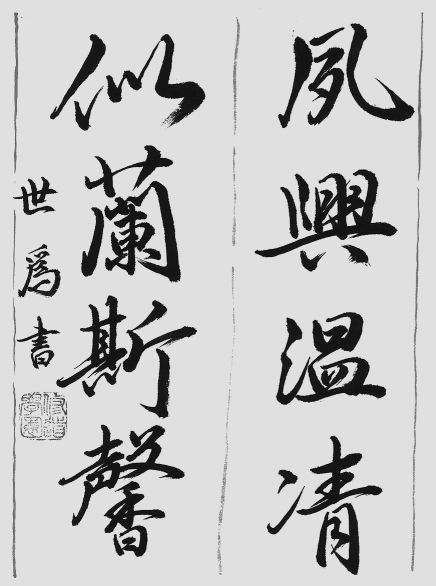 夙興温凊
似蘭斯馨
世為書